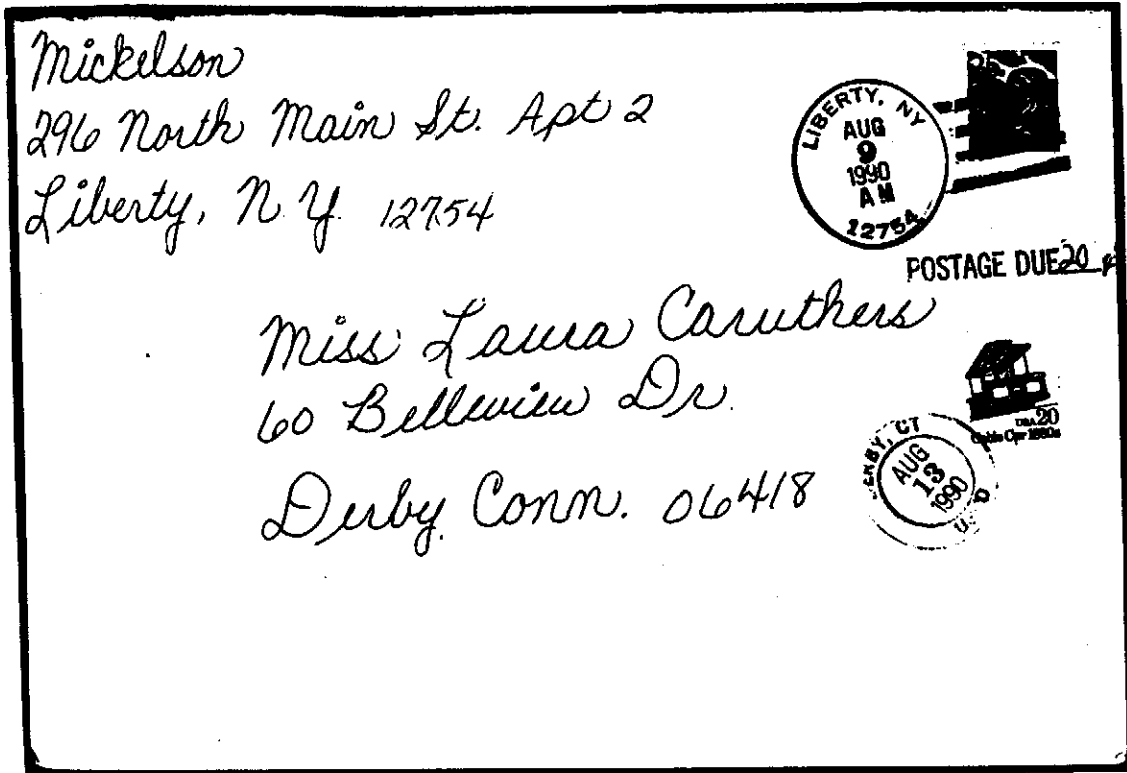 Mickelson
296 North Main St. Apt 2
Liberty, N.Y. 12754
LIBERTY, NY
AUG
9
1990
AM
12754
POSTAGE DUE 20 ¢
Miss Laura Caruthers
60 Belleview Dr.
Derby, Conn. 06418
USA 20
Cable Car 1880s
CT
AUG
13
1990